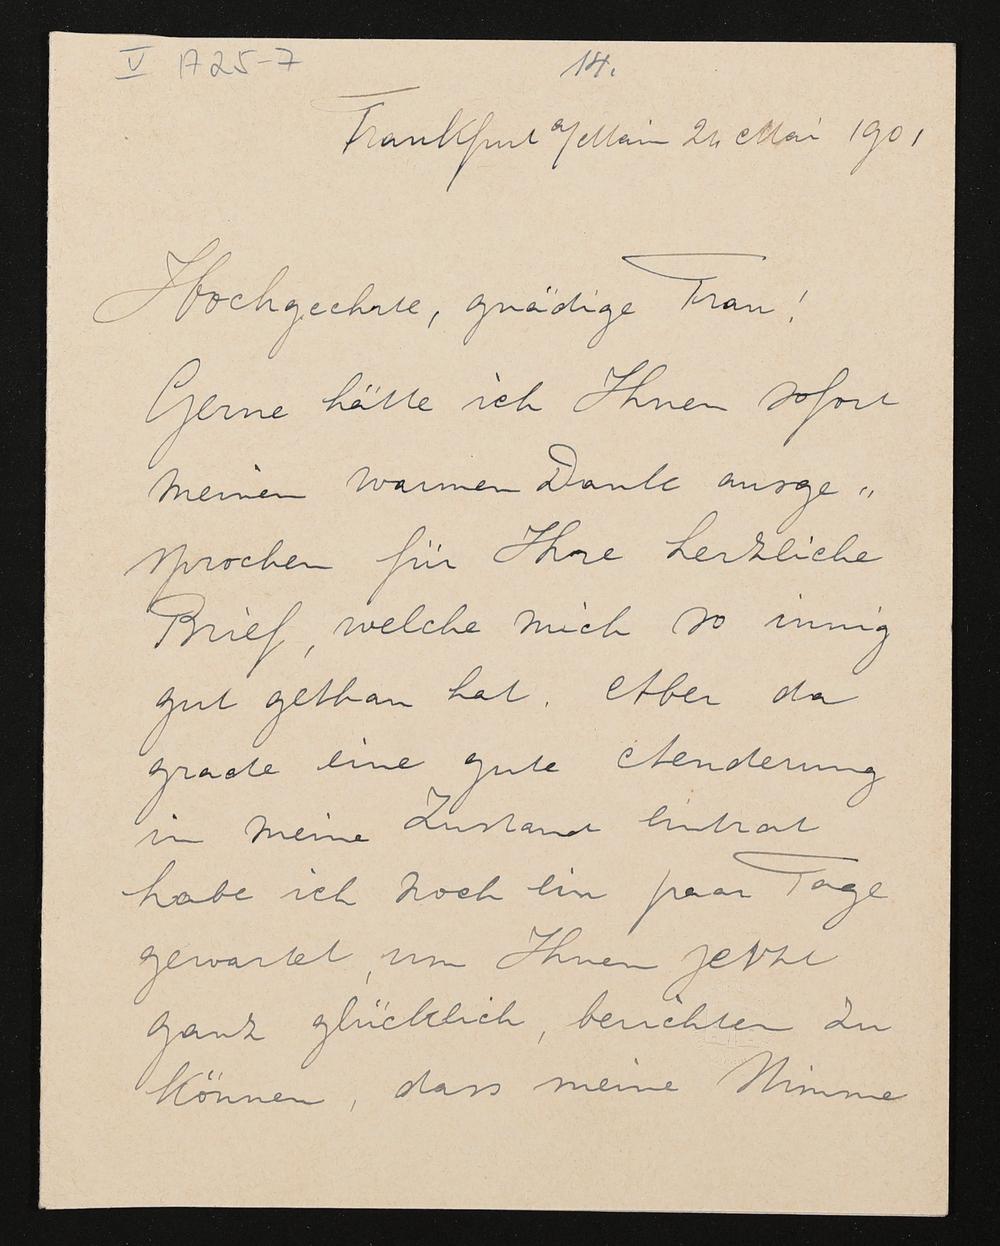 V 1725-7
14.
Frankfurt a/Main 24 Mai 1901
Hochgeehrte, gnädige Frau!
Gerne hätte ich Ihnen sofort
meinen warmen Dank ausge„
sprochen für Ihre herzliche
Brief, welche mich so innig
gut gethan hat. Aber da
grade eine gute Aenderung
in meine Zustand eintrat
habe ich noch ein paar Tage
gewartet, um Ihnen jetzt
ganz glücklich, berichten zu
können, dass meine Stimme